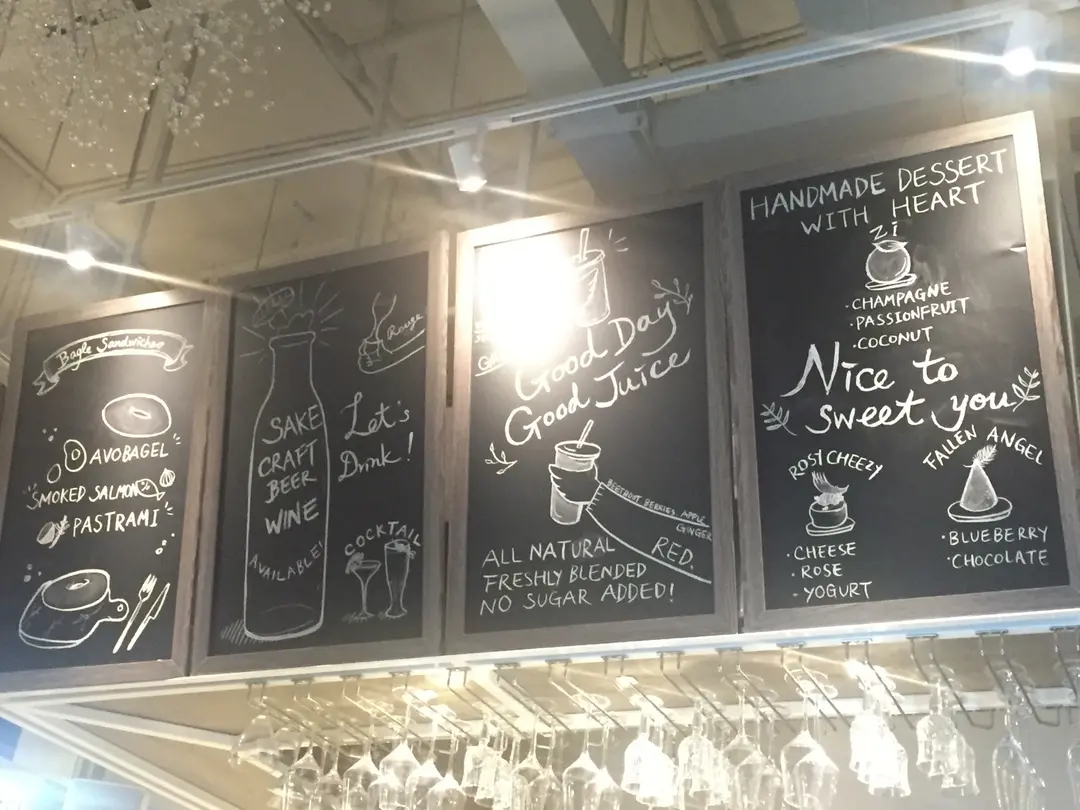 Bagle Sandwiches
AVOBAGEL
SMOKED SALMON
PASTRAMI
SAKE
CRAFT
BEER
WINE
AVAILABLE!
Rouge
Let's
Drink!
COCKTAIL
Good Day
Good Juice
BEETROOT BERRIES APPLE
GINGER
RED.
ALL NATURAL
FRESHLY BLENDED
NO SUGAR ADDED!
HANDMADE DESSERT
WITH HEART
Zi
·CHAMPAGNE
·PASSIONFRUIT
·COCONUT
Nice to
sweet you
ROSY CHEEZY
·CHEESE
·ROSE
·YOGURT
FALLEN ANGEL
·BLUEBERRY
·CHOCOLATE